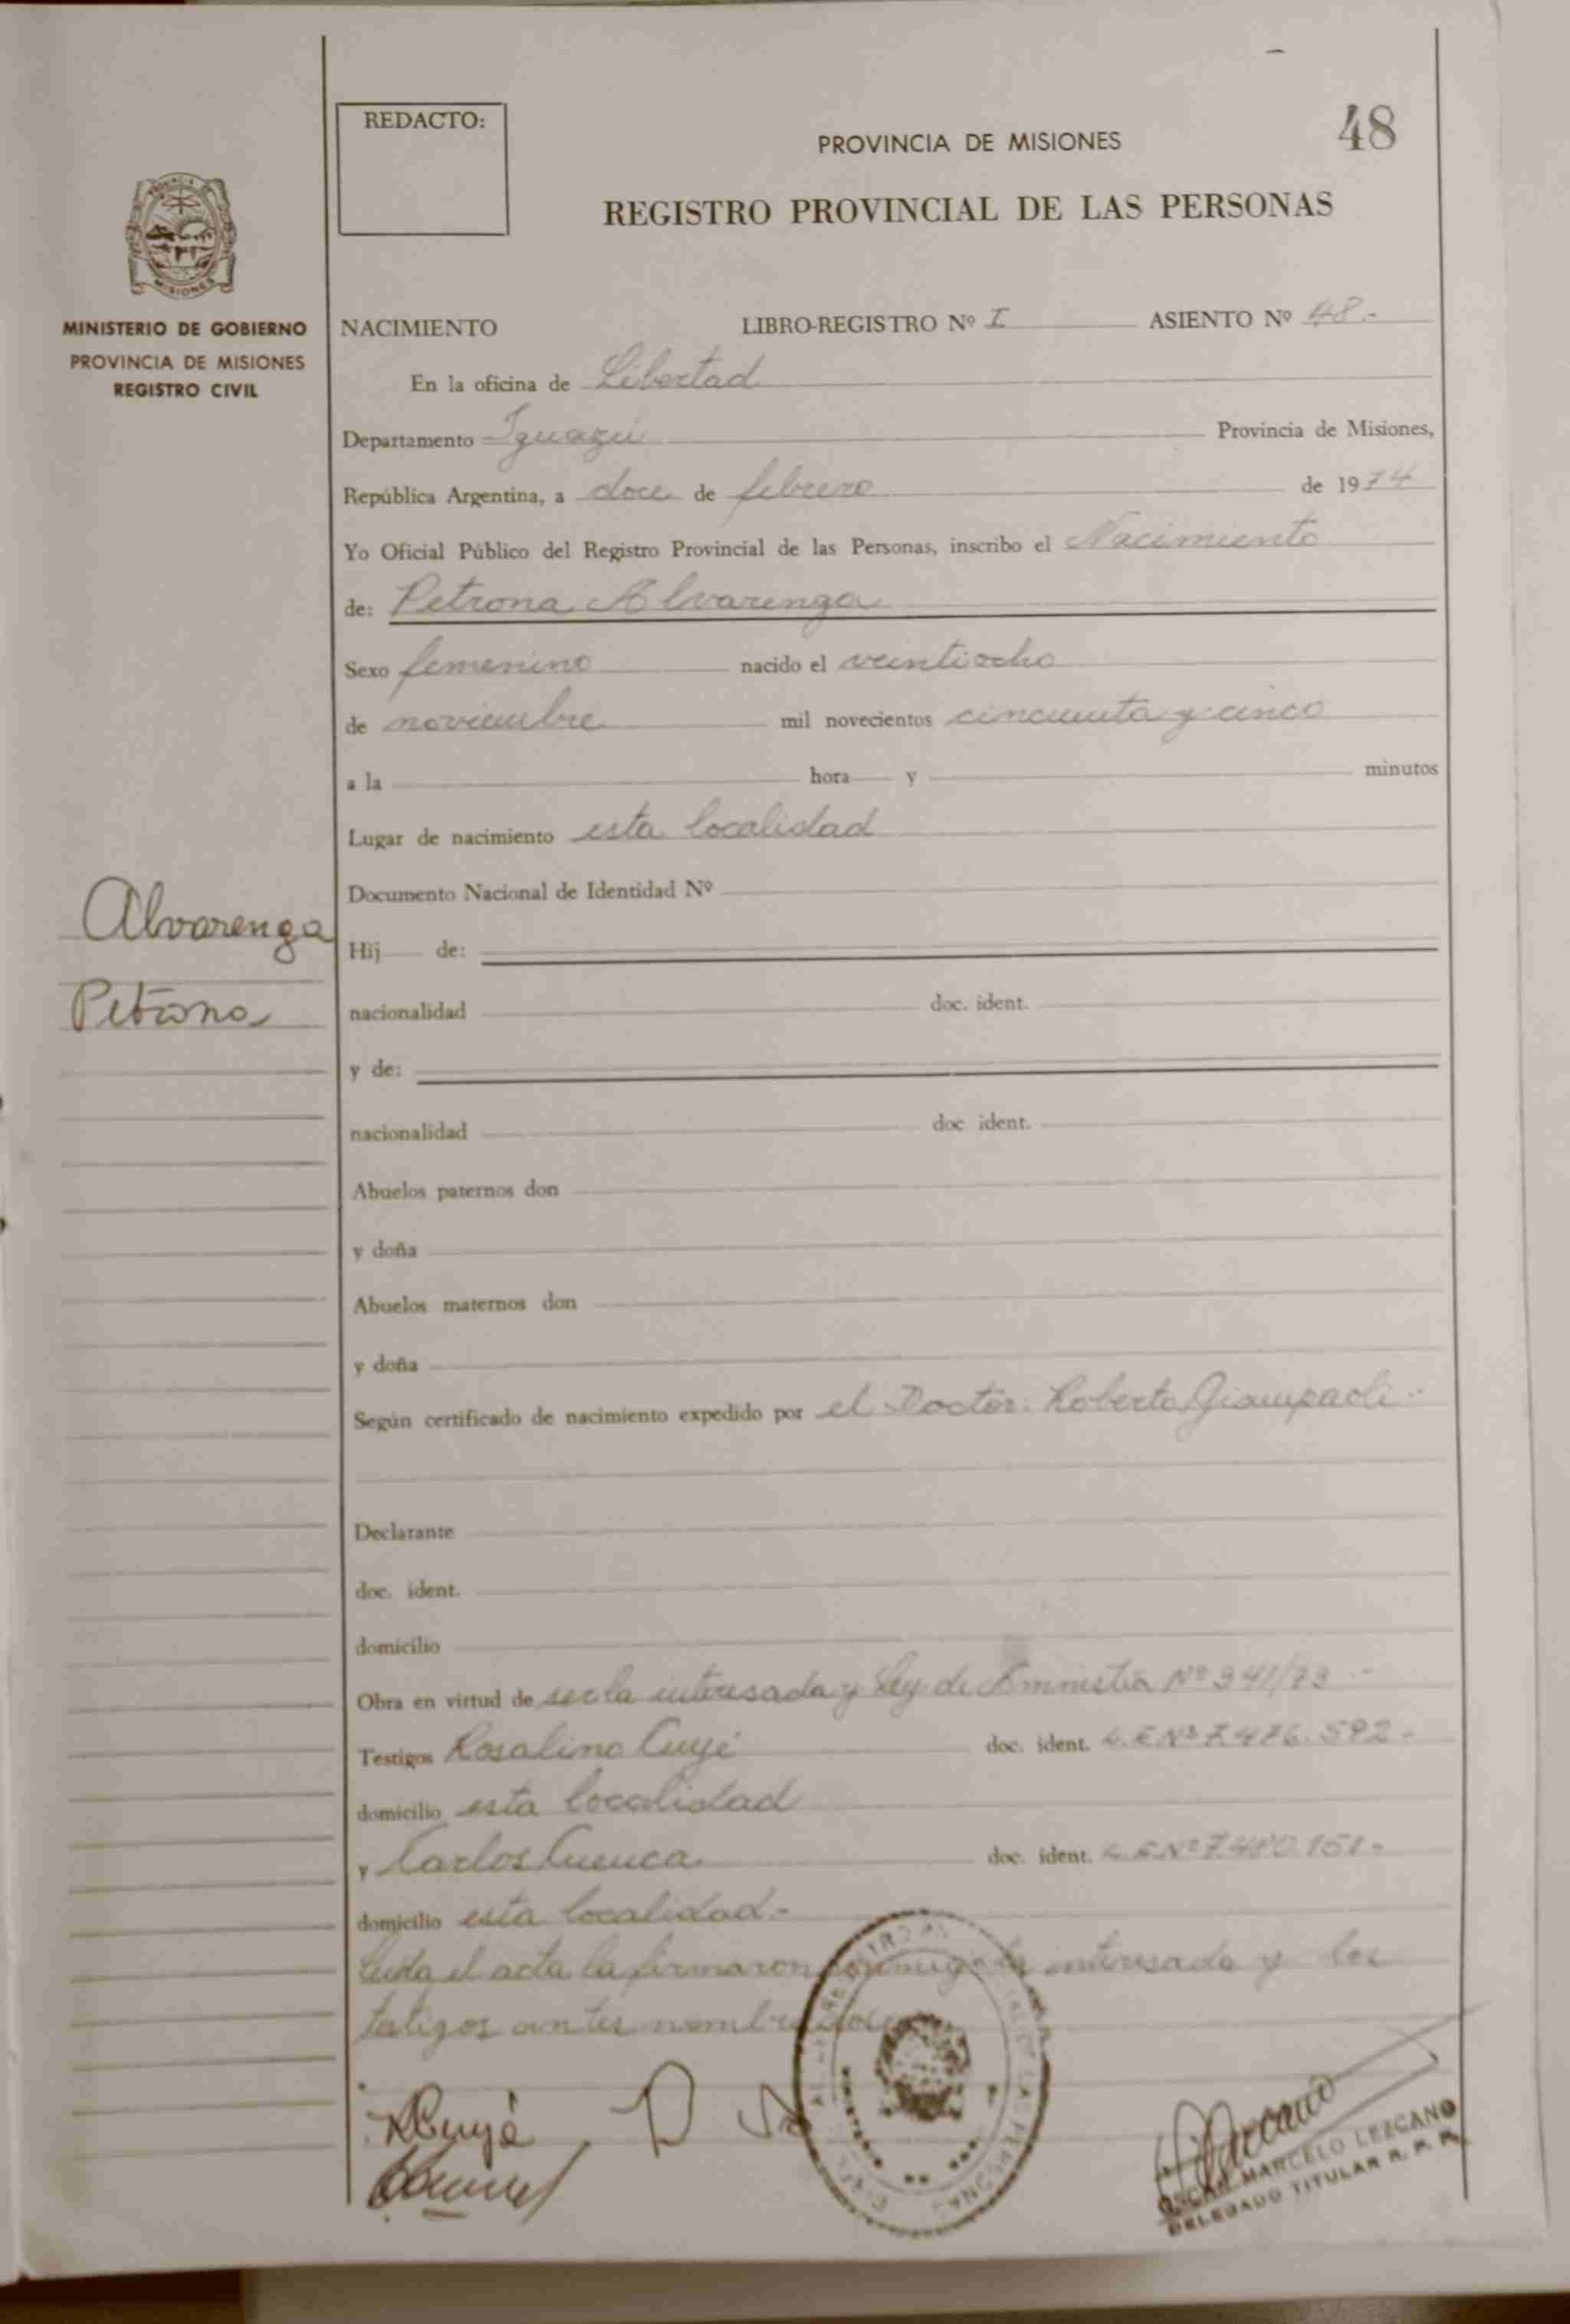 48
REDACTO:
PROVINCIA DE MISIONES
REGISTRO PROVINCIAL DE LAS PERSONAS
MISIONES
MINISTERIO DE GOBIERNO
PROVINCIA DE MISIONES
REGISTRO CIVIL
NACIMIENTO LIBRO-REGISTRO Nº I ASIENTO Nº 48.-
En la oficina de Libertad
Departamento Iguazú Provincia de Misiones,
República Argentina, a doce de febrero de 1974
Yo Oficial Público del Registro Provincial de las Personas, inscribo el Nacimiento
de: Petrona Alvarenga
Sexo femenino nacido el veintiocho
de noviembre mil novecientos cincuenta y cinco
a la hora y minutos
Lugar de nacimiento esta localidad
Documento Nacional de Identidad Nº
Alvarenga
Petrona
Hij de:
nacionalidad doc. ident.
y de:
nacionalidad doc ident.
Abuelos paternos don
y doña
Abuelos maternos don
y doña
Según certificado de nacimiento expedido por el Doctor: Roberto Giampaoli.-
Declarante
doc. ident.
domicilio
Obra en virtud de ser la interesada y Ley de Amnistía Nº 941/73.-
Testigos Rosalino Cuyé doc. ident. L.E Nº 7.476.592.-
domicilio esta localidad
y Carlos Cuenca doc. ident. L.E.Nº 7.480.151.-
domicilio esta localidad.-
Leída el acta la firmaron conmigo la interesada y los
testigos antes nombrados
OSCAR MARCELO LEZCANO
DELEGADO TITULAR R. P. P.